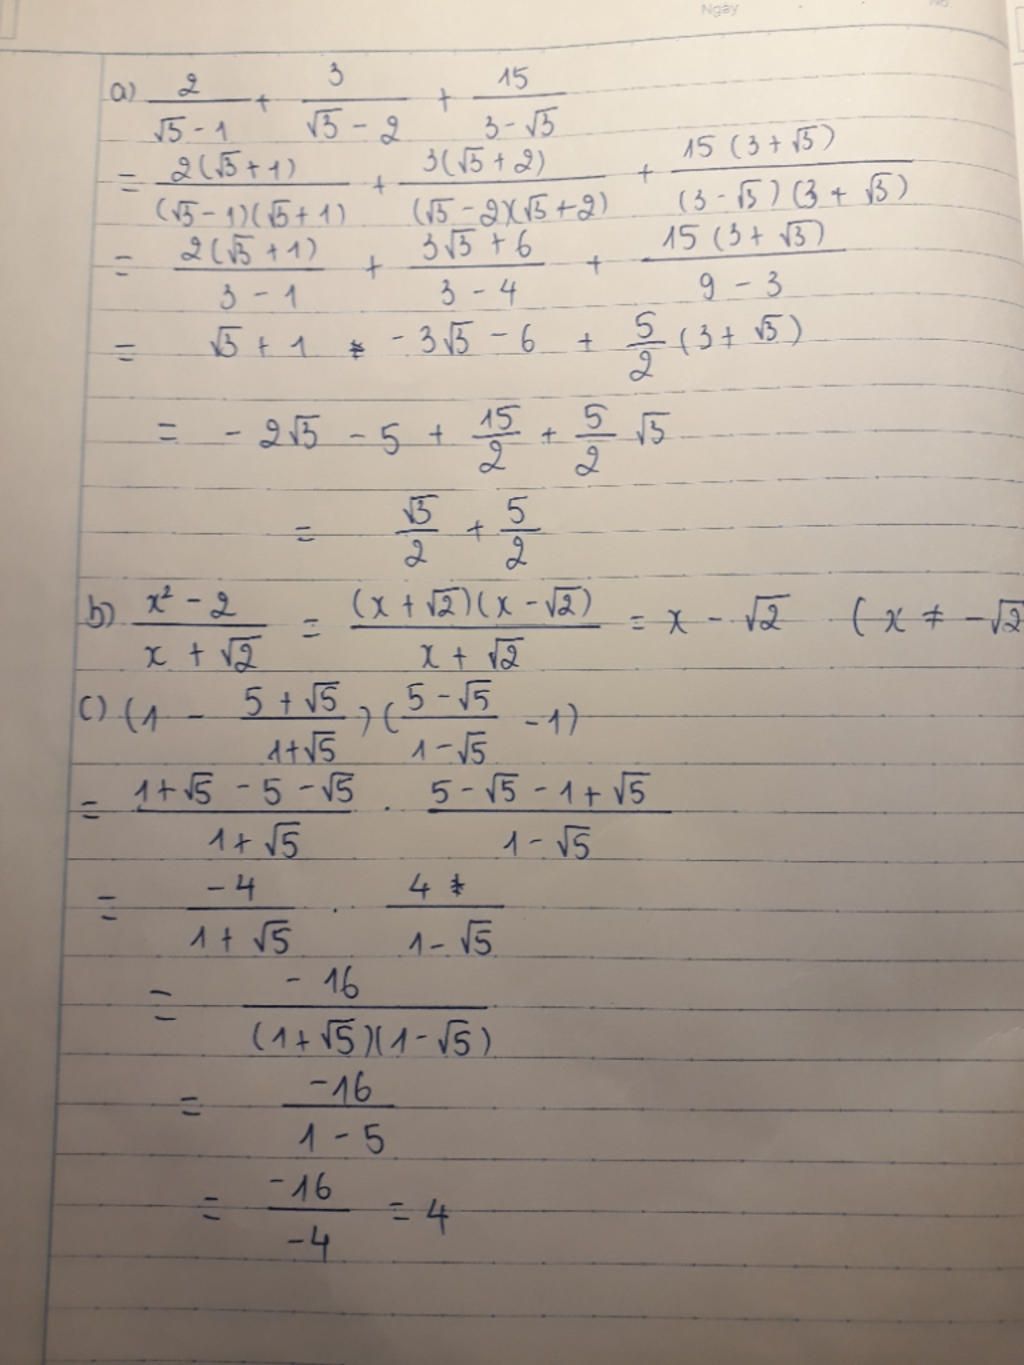 Ngày
No.
a) 2/(√3 - 1) + 3/(√3 - 2) + 15/(3 - √3)
= 2(√3 + 1)/((√3 - 1)(√3 + 1)) + 3(√3 + 2)/((√3 - 2)(√3 + 2)) + 15(3 + √3)/((3 - √3)(3 + √3))
= 2(√3 + 1)/(3 - 1) + (3√3 + 6)/(3 - 4) + 15(3 + √3)/(9 - 3)
= √3 + 1 - 3√3 - 6 + 5/2 (3 + √3)
= - 2√3 - 5 + 15/2 + 5/2 √3
= √3/2 + 5/2
b) (x² - 2)/(x + √2) = (x + √2)(x - √2)/(x + √2) = x - √2 (x ≠ -√2
c) (1 - (5 + √5)/(1 + √5))((5 - √5)/(1 - √5) - 1)
= (1 + √5 - 5 - √5)/(1 + √5) . (5 - √5 - 1 + √5)/(1 - √5)
= -4/(1 + √5) . 4/(1 - √5)
= -16/((1 + √5)(1 - √5))
= -16/(1 - 5)
= -16/-4 = 4